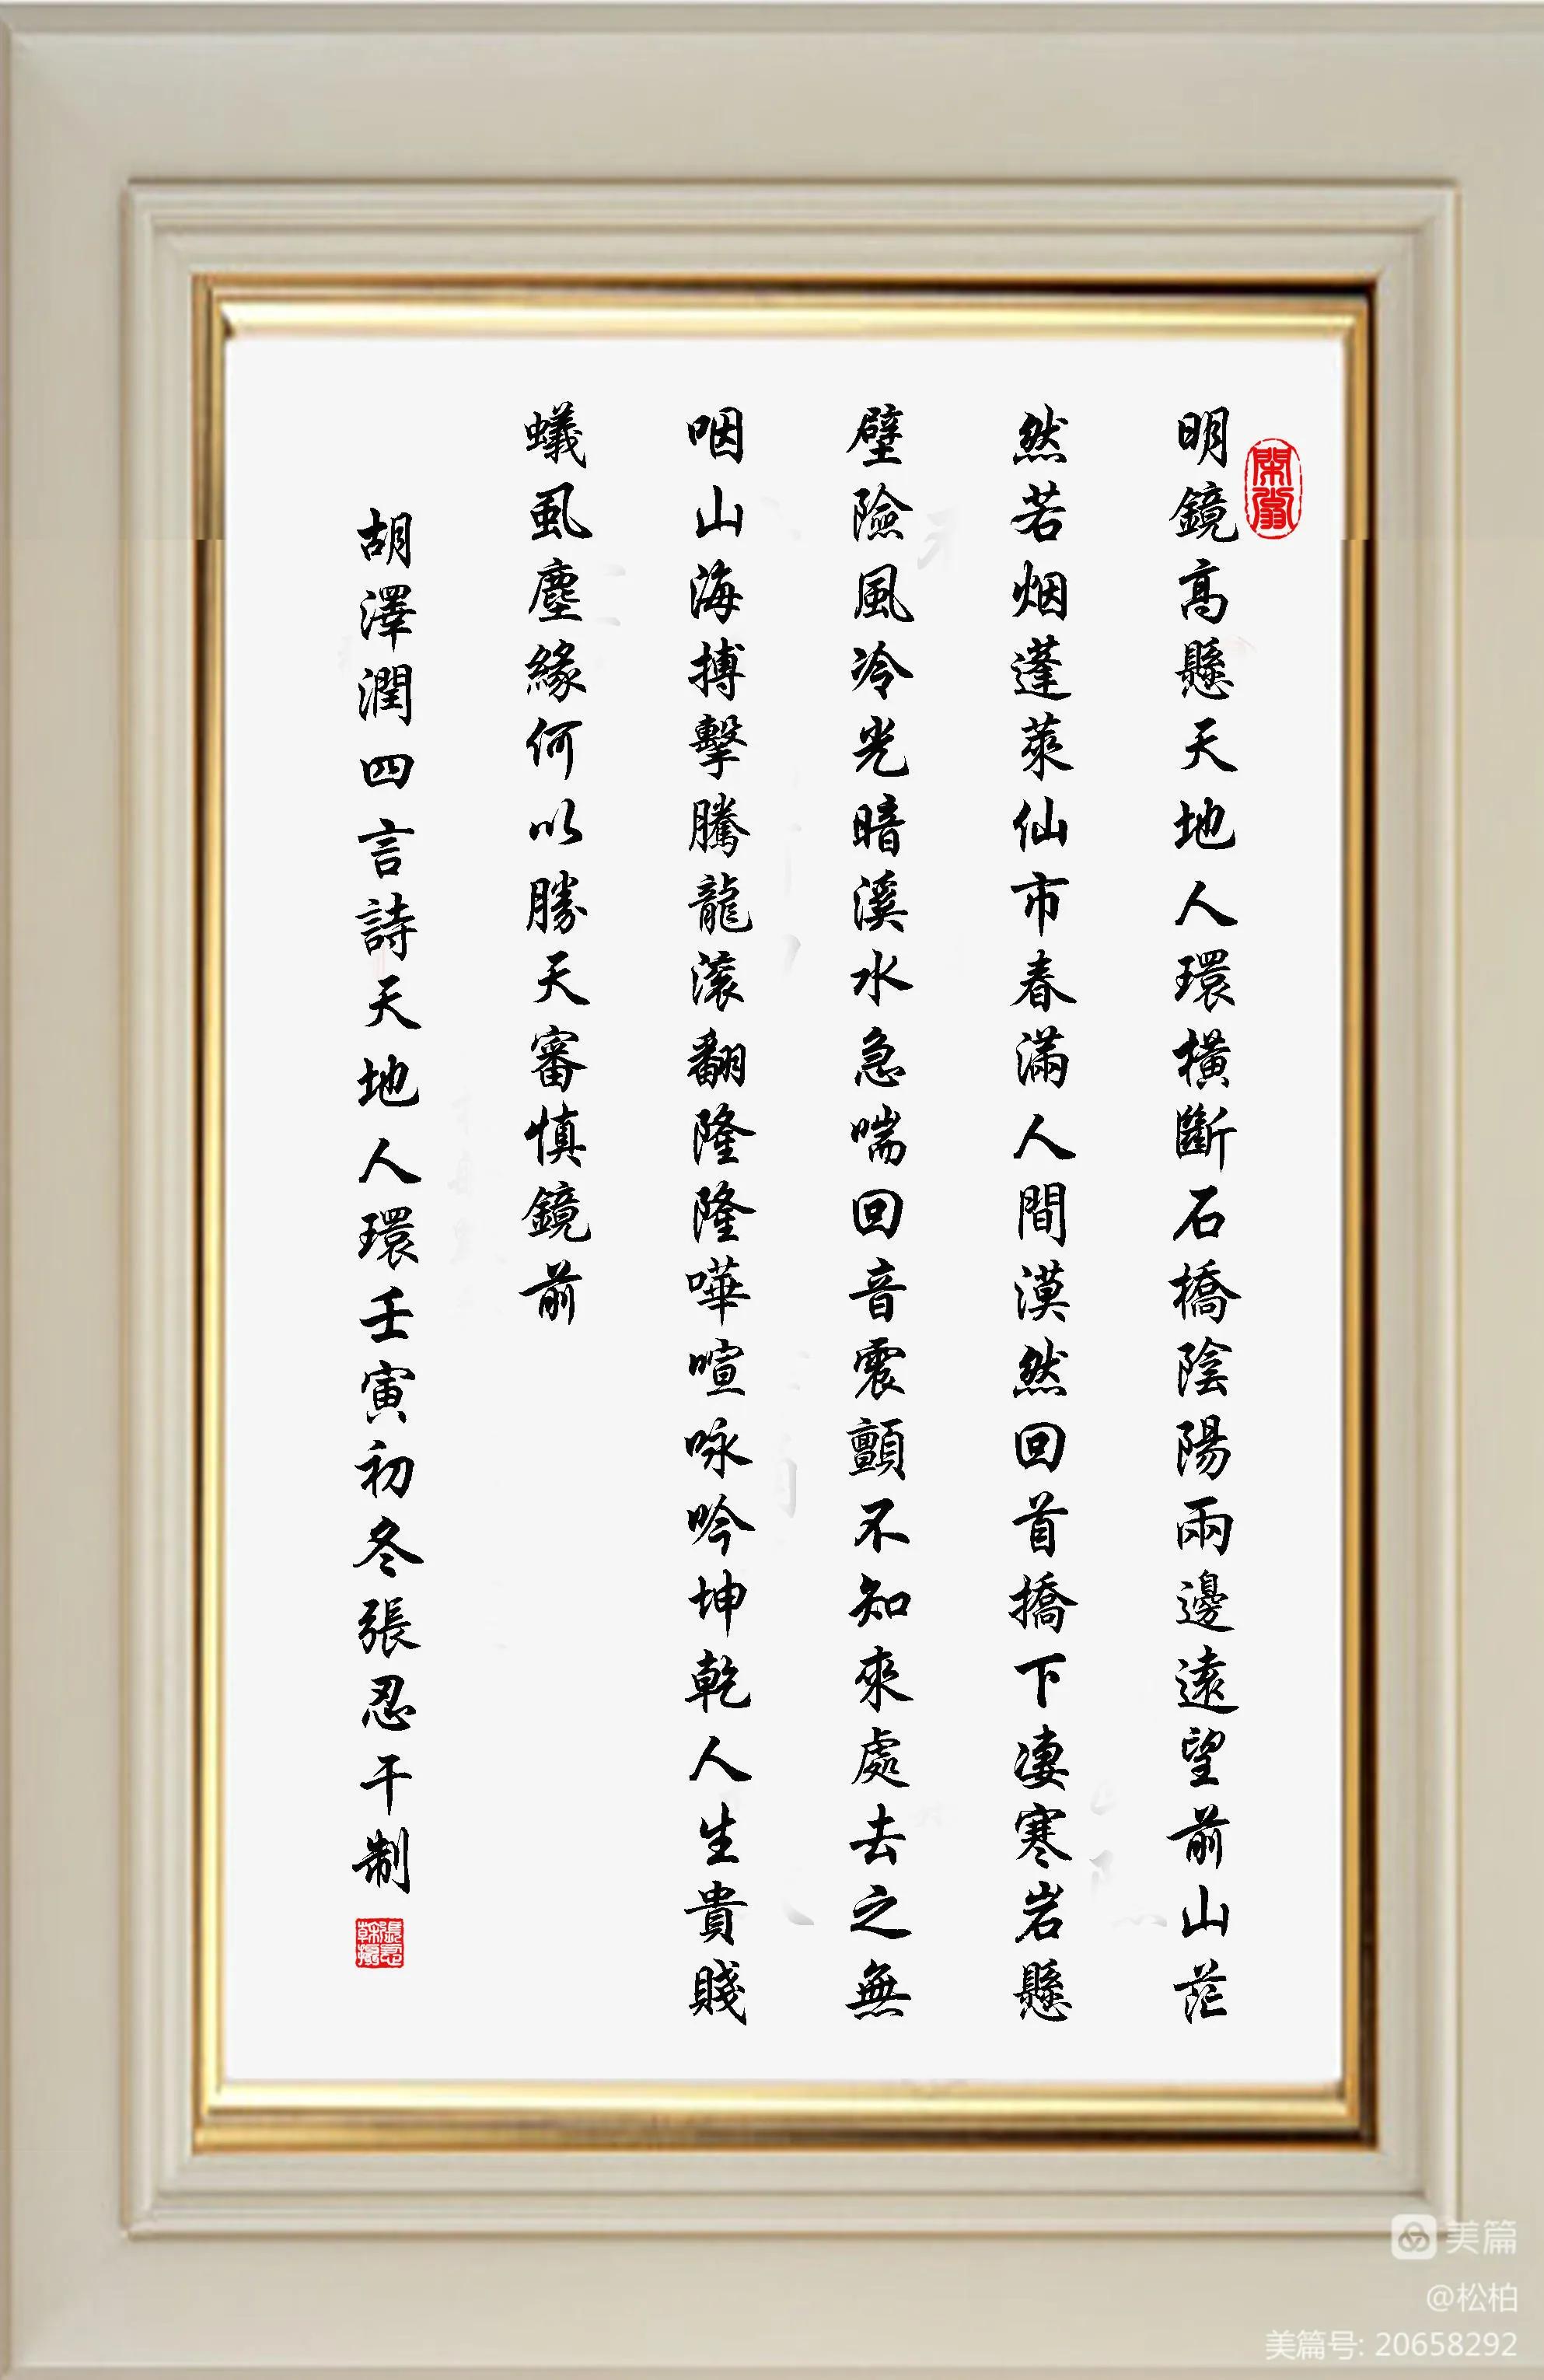 明鏡高懸天地人環橫斷石橋陰陽兩邊遠望前山茫
然若烟蓬萊仙市春滿人間漠然回首撟下淒寒岩懸
壁險風冷光暗溪水急喘回音震顫不知來處去之無
咽山海搏擊騰龍滚翻隆隆嘩喧咏吟坤乾人生貴賤
蟻虱塵緣何以勝天審慎鏡前
胡澤潤四言詩天地人環壬寅初冬張忍干制
美篇
@松柏
美篇号: 20658292